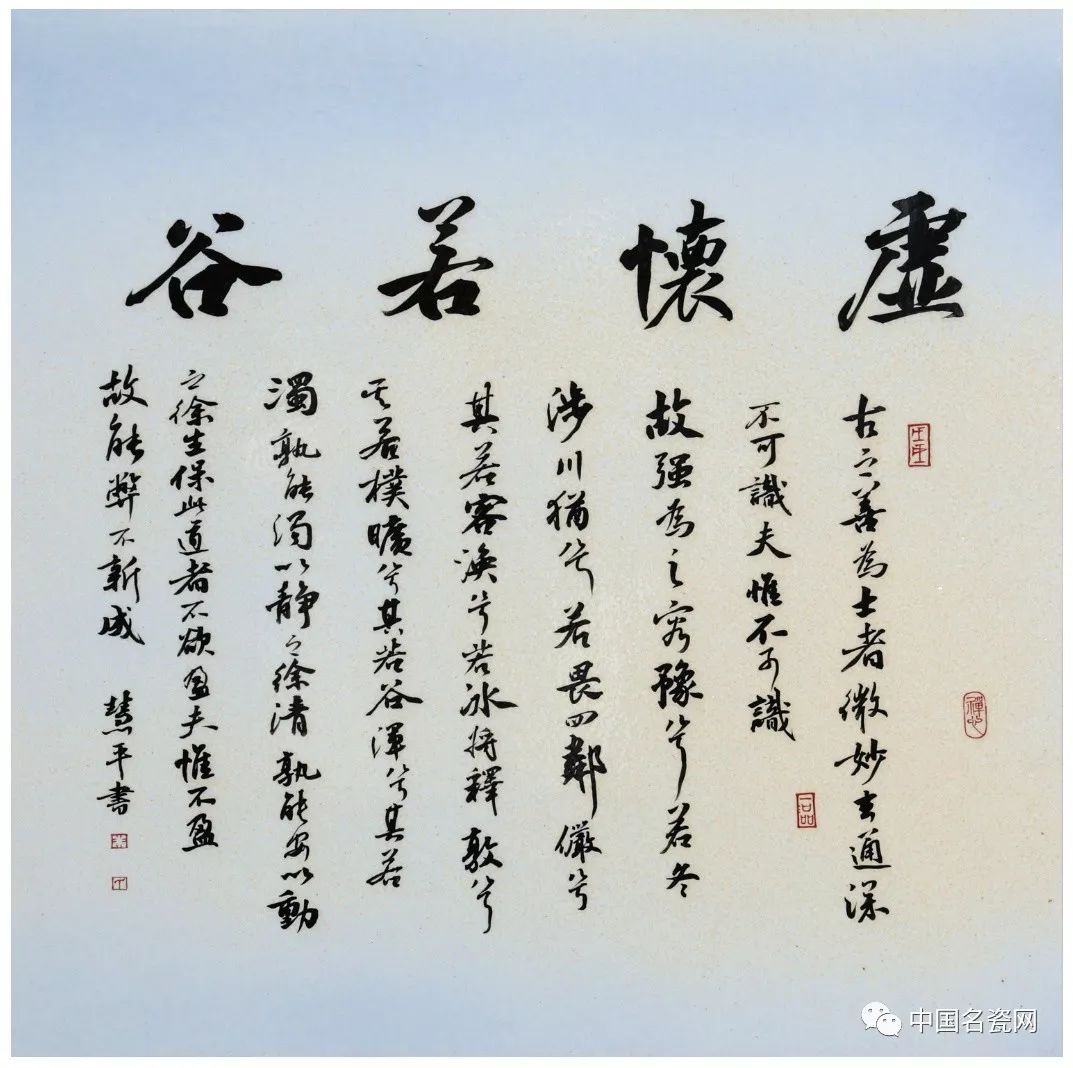 虛懷若谷
古之善為士者微妙玄通深
不可識夫惟不可識
故强為之容豫兮若冬
涉川猶兮若畏四鄰儼兮
其若客渙兮若冰将釋敦兮
其若樸曠兮其若谷渾兮其若
濁孰能濁以靜之徐清孰能安以動
之徐生保此道者不欲盈夫惟不盈
故能弊不新成 慧平書
中国名瓷网